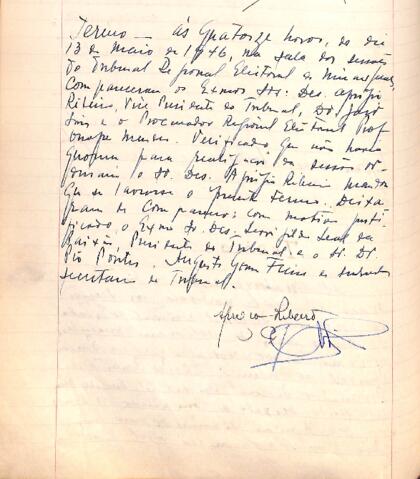 Termo — às quatorze horas, do dia
13 de maio de 1946, na sala das sessões
do Tribunal Regional Eleitoral de Minas Gerais,
compareceram os Exmos Srs. Des.
Ribeiro, Vice Presidente do Tribunal, Dr.
e o Procurador Regional Eleitoral Prof
Verificado, que não houve
quorum para da sessão or
o Sr. Des. Ribeiro mandou
que se lavrasse o presente termo. Deixa
ram de comparecer, com motivo justi
ficado, o Exmo Sr. Des. Leal da
Paixão, Presidente do Tribunal e o Sr. Dr.
Pio Pontes. Augusto
secretario do Tribunal.
Ribeiro